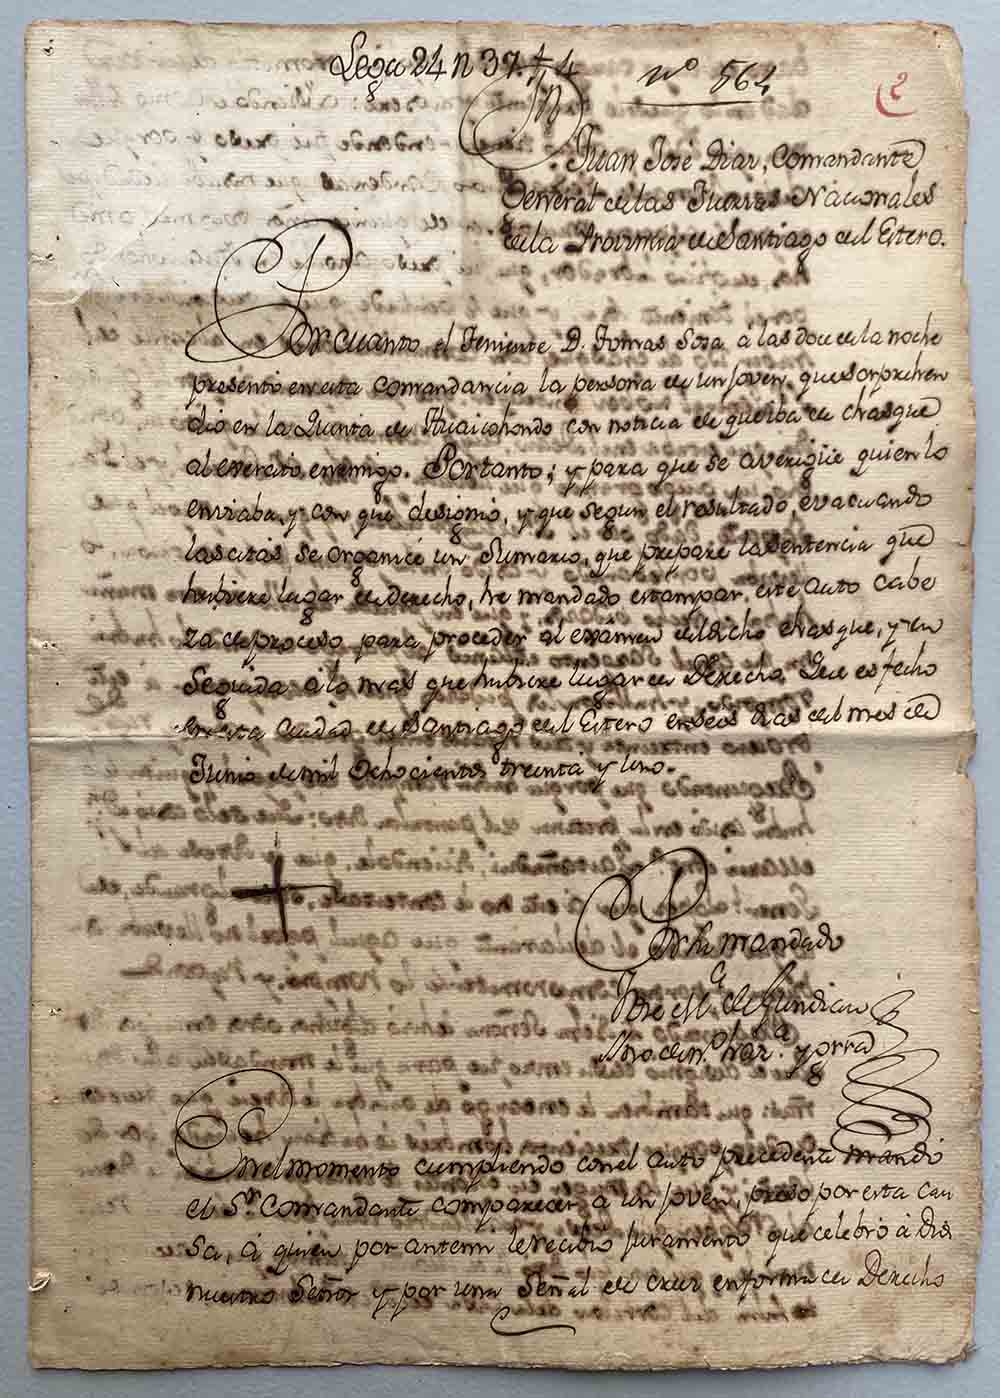 Lega 24 n 37. 4
nº 564
2
Juan José Diaz, Comandante
General de las Fuerzas Nacionales
de la Provincia de Santiago del Estero.
Por cuanto el Teniente D. Tomas Sosa á las doce de la noche
presentó en esta Comandancia la persona de un joven, que sorprehen
dió en la Quinta de Huaicohondo con noticia de que iba de chasque
al exercito enemigo. Por tanto; y para que se averigüe quien lo
enviaba, y con qué designio, y que segun el resultado, evacuando
las citas se organice un Sumario, que prepare la sentencia que
hubiere lugar de derecho, he mandado estampar este auto cabe
za de proceso para proceder al exâmen del dicho chasque, y en
seguida á lo mas que hubiere lugar en Derecho. Que es fecho
en esta Ciudad de Santiago del Estero en seis dias del mes de
Junio de mil Ochocientos treinta y uno.
Por su mandado
José Mª. de Gundian
En el momento cumpliendo con el auto precedente mandó
el Sr. Comandante comparecer a un joven, preso por esta cau
sa, á quien por antemi le recibió juramento que celebró á Dios
nuestro Señor y por una Señal de cruz en forma de Derecho